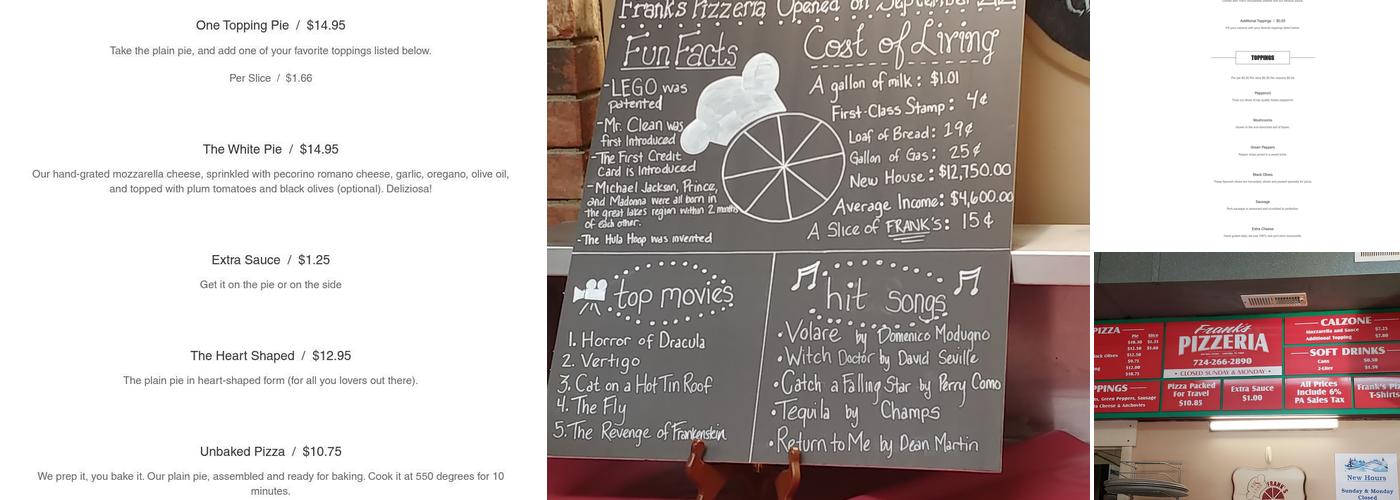 One Topping Pie / $14.95
Take the plain pie, and add one of your favorite toppings listed below.
Per Slice / $1.66
The White Pie / $14.95
Our hand-grated mozzarella cheese, sprinkled with pecorino romano cheese, garlic, oregano, olive oil,
and topped with plum tomatoes and black olives (optional). Deliziosa!
Extra Sauce / $1.25
Get it on the pie or on the side
The Heart Shaped / $12.95
The plain pie in heart-shaped form (for all you lovers out there).
Unbaked Pizza / $10.75
We prep it, you bake it. Our plain pie, assembled and ready for baking. Cook it at 550 degrees for 10
minutes.
Frank's Pizzeria Opened on September
Fun Facts
-LEGO was
patented
-Mr. Clean was
first Introduced
-The First Credit
Card is Introduced
-Michael Jackson, Prince,
and Madonna were all born in
the great lakes region within 2 months
of each other.
-The Hula Hoop was invented
Cost of Living
A gallon of milk: $1.01
First-Class Stamp: 4¢
Loaf of Bread: 19¢
Gallon of Gas: 25¢
New House: $12,750.00
Average Income: $4,600.00
A Slice of FRANK'S: 15¢
top movies
1. Horror of Dracula
2. Vertigo
3. Cat on a Hot Tin Roof
4. The Fly
5. The Revenge of Frankenstein
hit songs
•Volare by Domenico Modugno
•Witch Doctor by David Seville
•Catch a Falling Star by Perry Como
•Tequila by Champs
•Return to Me by Dean Martin
Additional Toppings / $0.55
TOPPINGS
Pepperoni
Mushrooms
Green Peppers
Black Olives
Sausage
Extra Cheese
PIZZA
Pie Slice
Frank's
PIZZERIA
724-266-2890
• CLOSED SUNDAY & MONDAY •
CALZONE
Mozzarella and Sauce $7.25
Additional Topping
SOFT DRINKS
Cans $0.50
2-Liter $1.59
PPINGS
Pizza Packed
For Travel
$10.85
Extra Sauce
$1.00
All Prices
Include 6%
PA Sales Tax
Frank's Pi
T-Shirts
FRANK'S
New Hours
Sunday & Monday
Closed